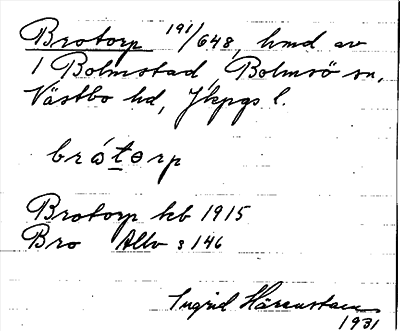 Brotorp 191/648, hmd av
1 Bolmstad, Bolmsö sn,
Västbo hd, Jkpgs l.
brótorp
Brotorp kb 1915
Bro Allv s 146
Ingrid Härenstam
1931